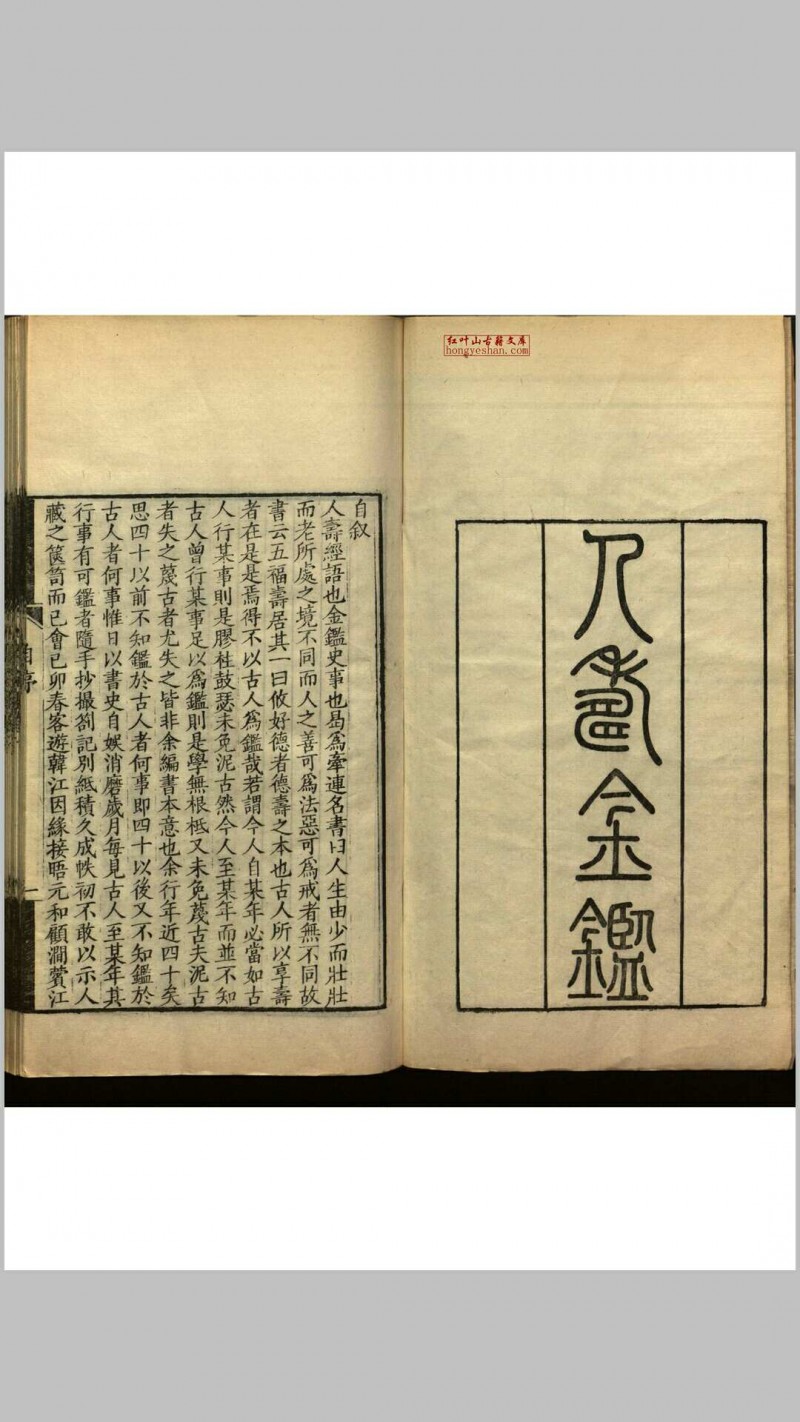 红叶山古籍文库
hongyeshan.com
人壽金鑑
自叙
人壽經語也金鑑史事也曷爲牽連名書曰人生由少而壯壯
而老所處之境不同而人之善可爲法惡可爲戒者無不同故
書云五福壽居其一曰攸好德者德壽之本也古人所以享壽
者在是是焉得不以古人爲鑑哉若謂今人自某年必當如古
人行某事則是膠柱鼓瑟未免泥古然今人至某年而並不知
古人曾行某事足以爲鑑則是學無根柢又未免蔑古夫泥古
者失之蔑古者尤失之皆非余編書本意也余行年近四十矣
思四十以前不知鑑於古人者何事即四十以後又不知鑑於
古人者何事惟日以書史自娛消磨歲月每見古人至某年其
行事有可鑑者隨手抄撮劄記別紙積久成帙初不敢以示人
藏之篋笥而已會己卯春客遊韓江因緣接晤元和顧澗薲江
自序
一